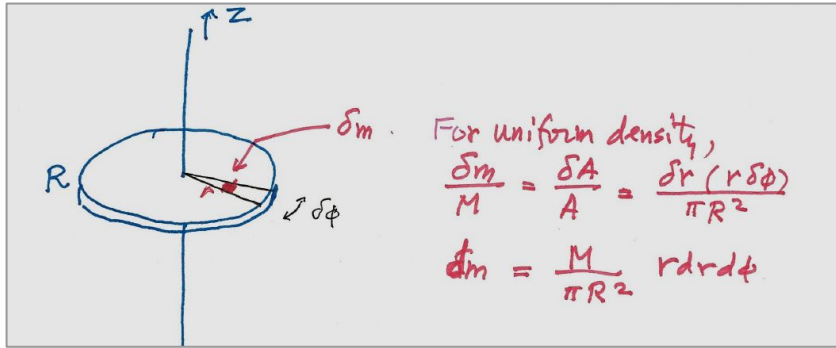 ↑ Z
δm
R
r
δφ
For uniform density,
δm/M = δA/A = δr (r δφ)/πR²
dm = M/πR² r dr dφ